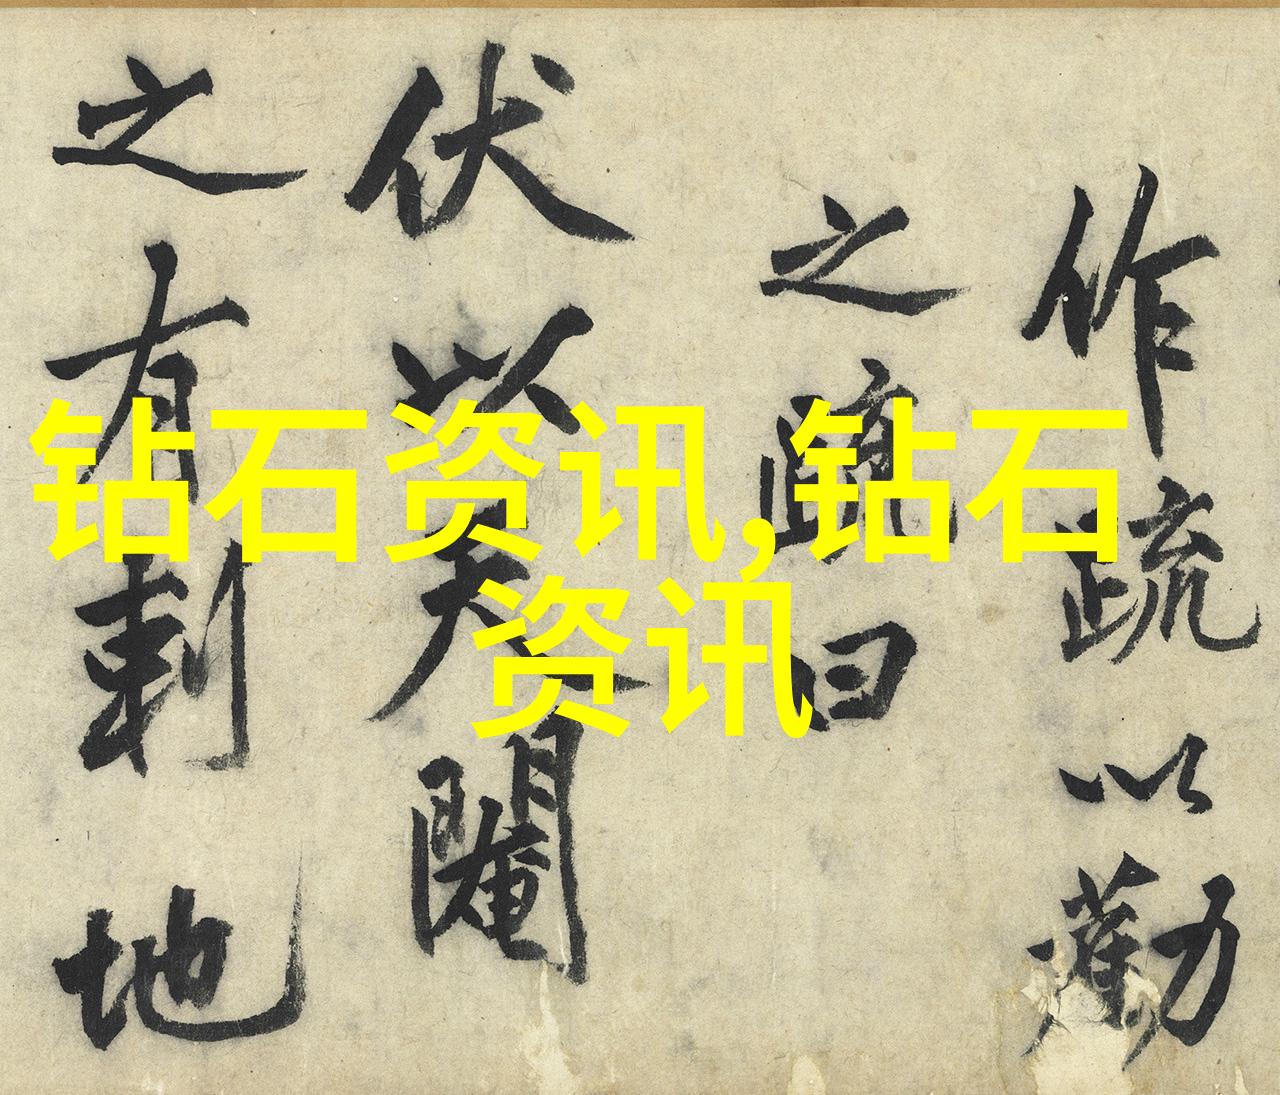 作疏以勸
之疏曰
伏以天闢
之有剌地
钻石资讯,钻石
资讯